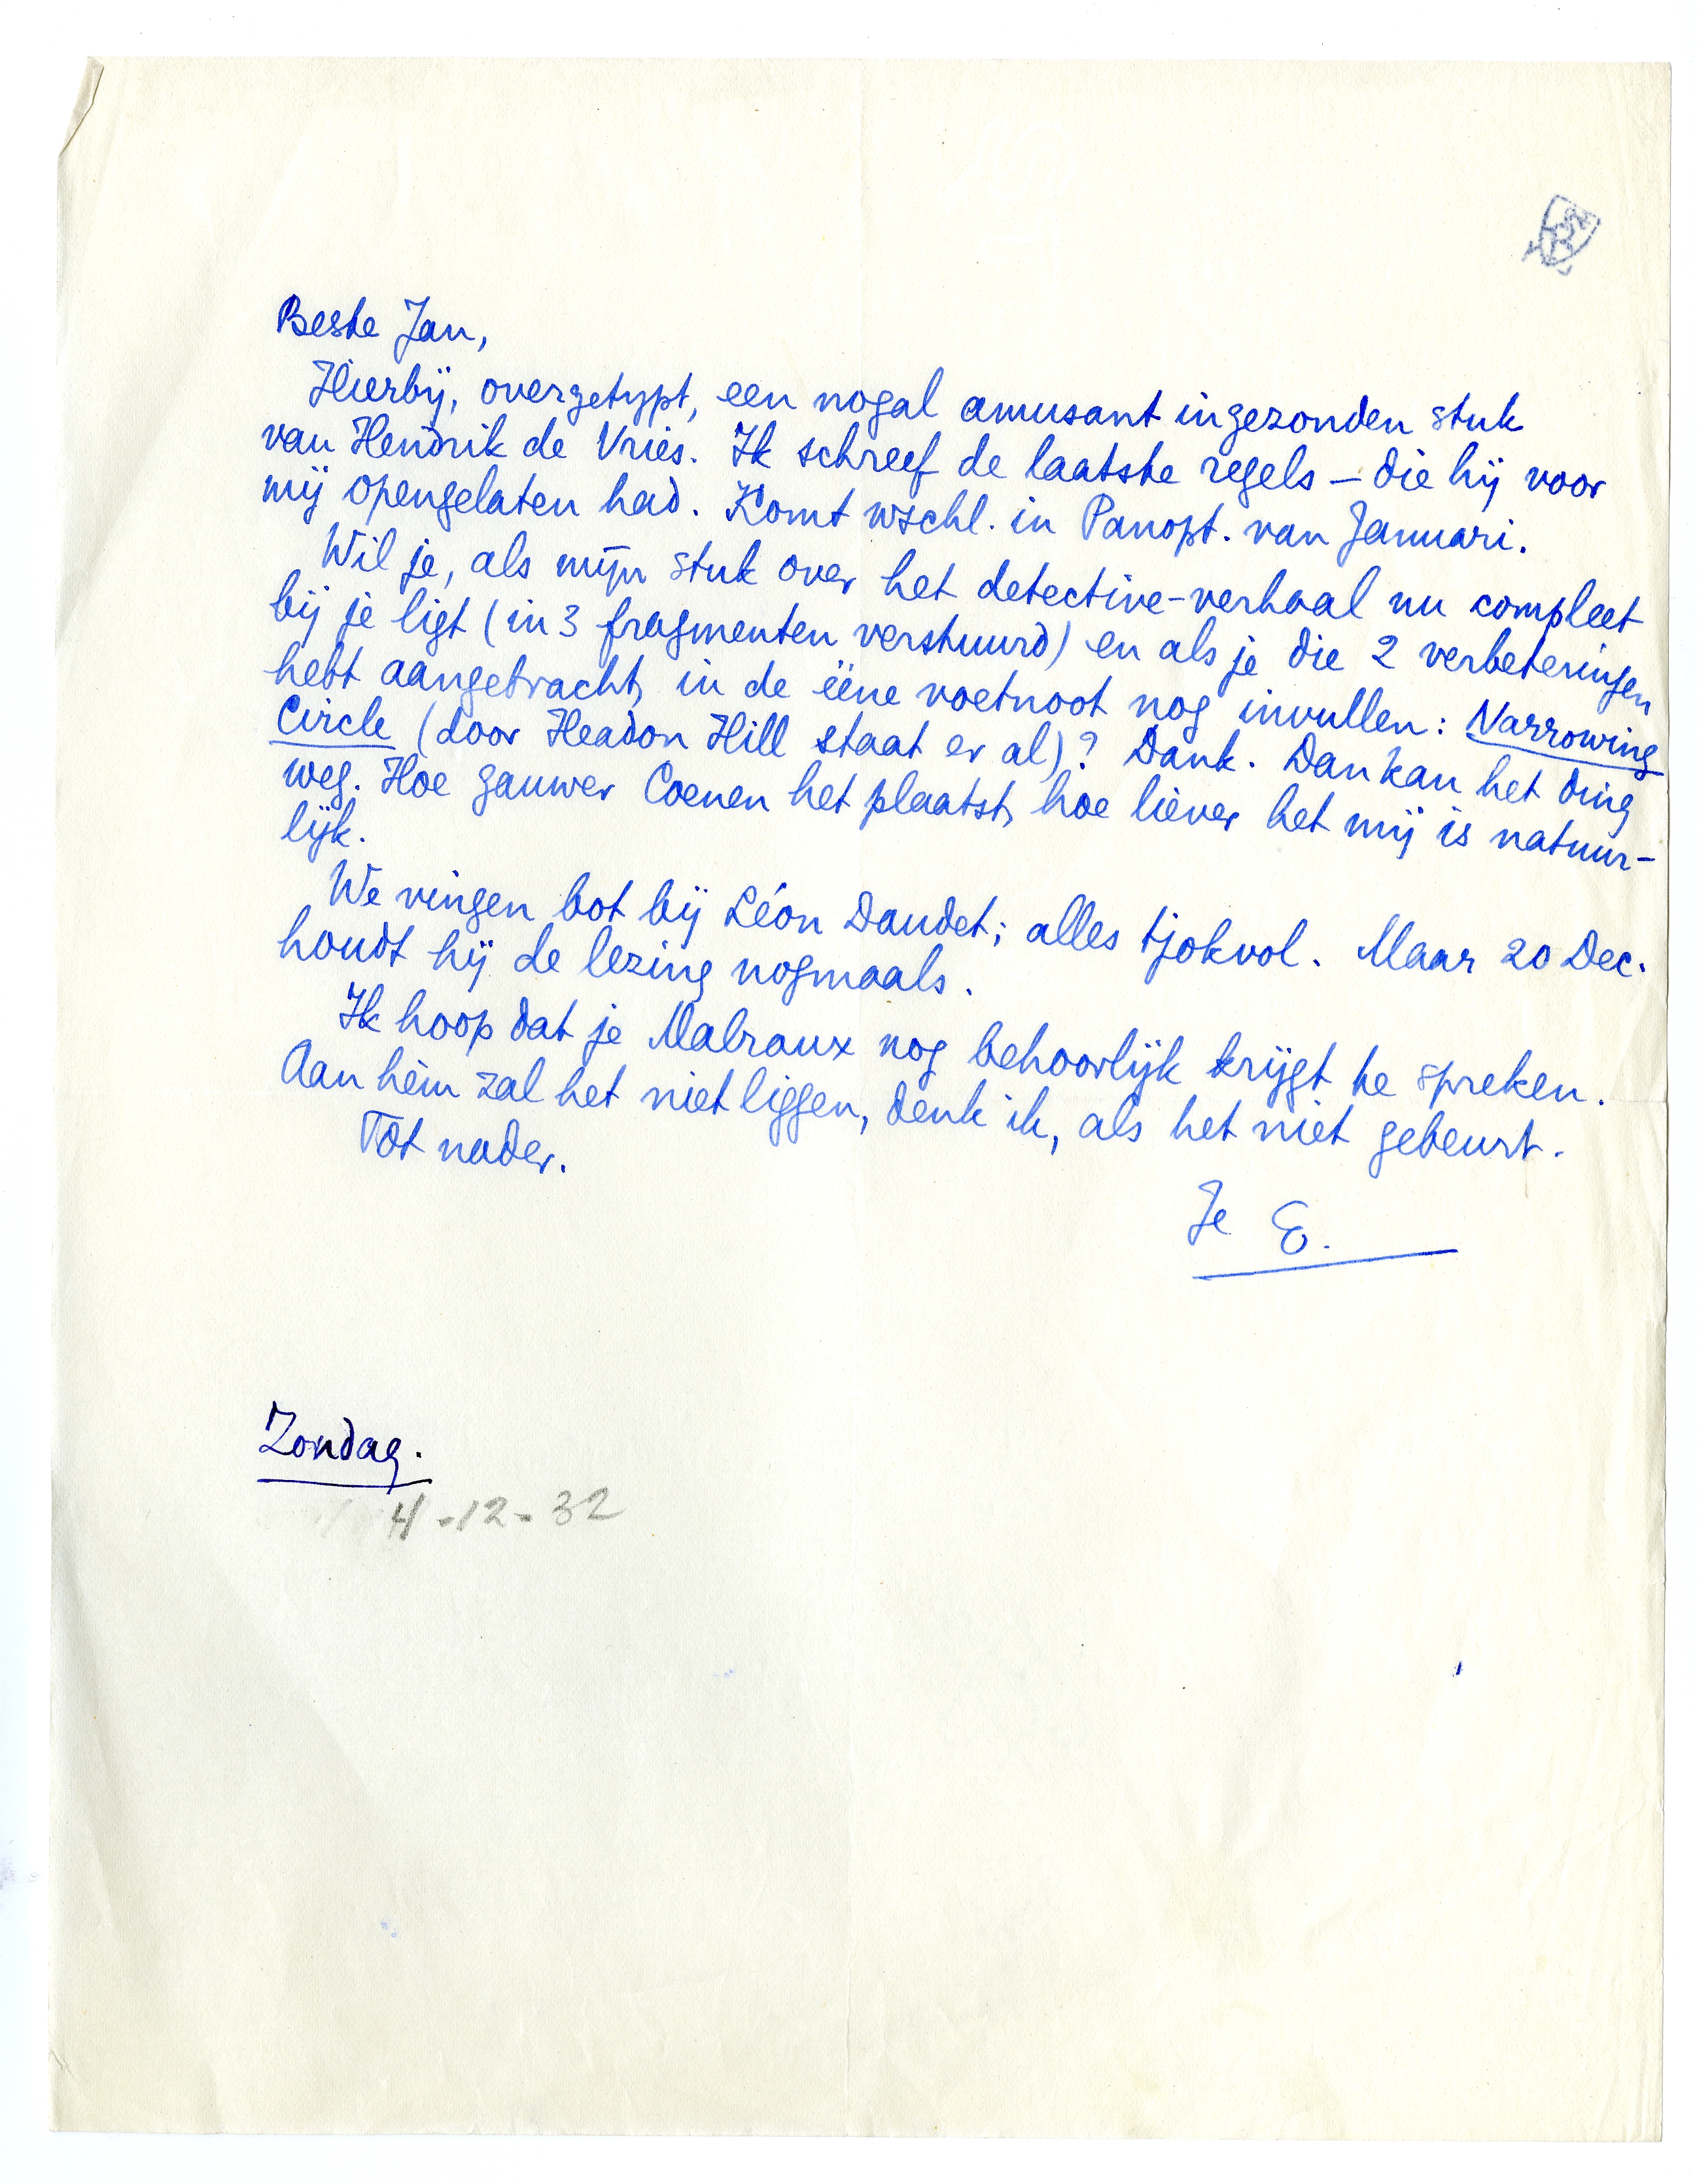 Beste Jan,
Hierbij, overgetypt, een nogal amusant ingezonden stuk
van Hendrik de Vries. Ik schreef de laatste regels – die hij voor
mij opengelaten had. Komt wschl. in Panopt. van Januari.
Wil je, als mijn stuk over het detective-verhaal nu compleet
bij je ligt (in 3 fragmenten verstuurd) en als je die 2 verbeteringen
hebt aangebracht, in de ééne voetnoot nog invullen: Narrowing
Circle (door Headon Hill staat er al)? Dank. Dan kan het ding
weg. Hoe gauwer Coenen het plaatst, hoe liever het mij is natuur-
lijk.
We vingen bot bij Léon Daudet; alles tjokvol. Maar 20 Dec.
houdt hij de lezing nogmaals.
Ik hoop dat je Malraux nog behoorlijk krijgt te spreken.
Aan hèm zal het niet liggen, denk ik, als het niet gebeurt.
Tot nader.
Je E.
Zondag.
4-12-32